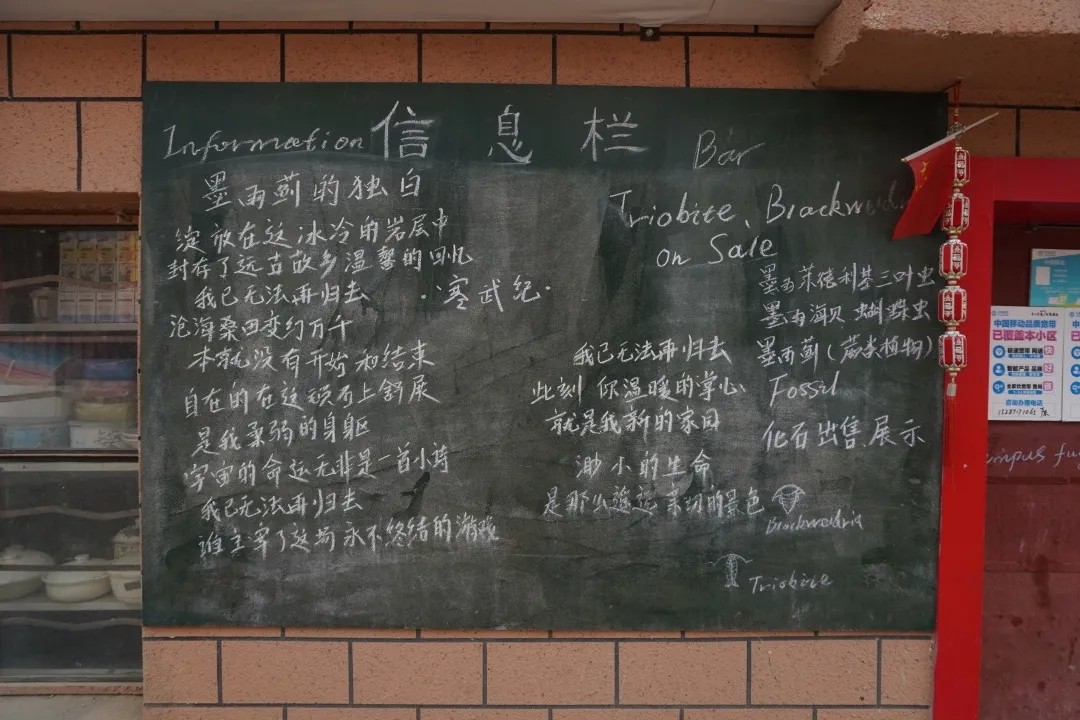 Information 信息栏 Bar
墨雨蓟的独白
绽放在这冰冷的岩层中
封存了远古故乡温馨的回忆
我已无法再归去
·寒武纪·
沧海桑田变幻万千
本就没有开始和结束
自在的在这顽石上舒展
是我柔弱的身躯
宇宙的命运无非是一首小诗
我已无法再归去
谁主宰了这场永不终结的游戏
我已无法再归去
此刻你温暖的掌心
就是我新的家园
渺小的生命
是那么遥远亲切的景色
Triobite、Brackwudi
on Sale
墨雨莱德利基三叶虫
墨雨海贝 蝌蝶虫
墨雨蓟(蕨类植物)
Fossil
化石出售 展示
Brackwudria
Triobite
中国移动品质宽带
已覆盖本小区
咨询办理电话
ampus fu